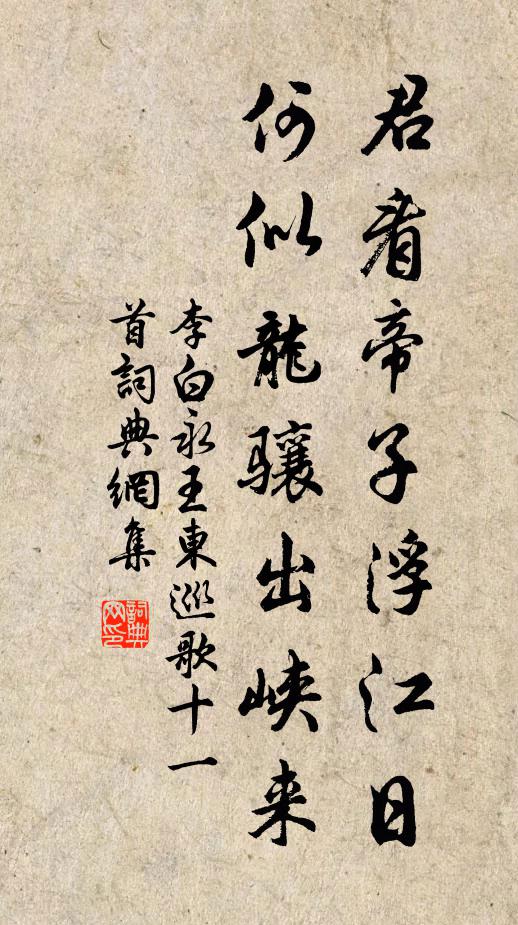 君看帝子浮江日
何似龍驤出峽来
李白永王東巡歌十一
首詞典網集
詞典
网印